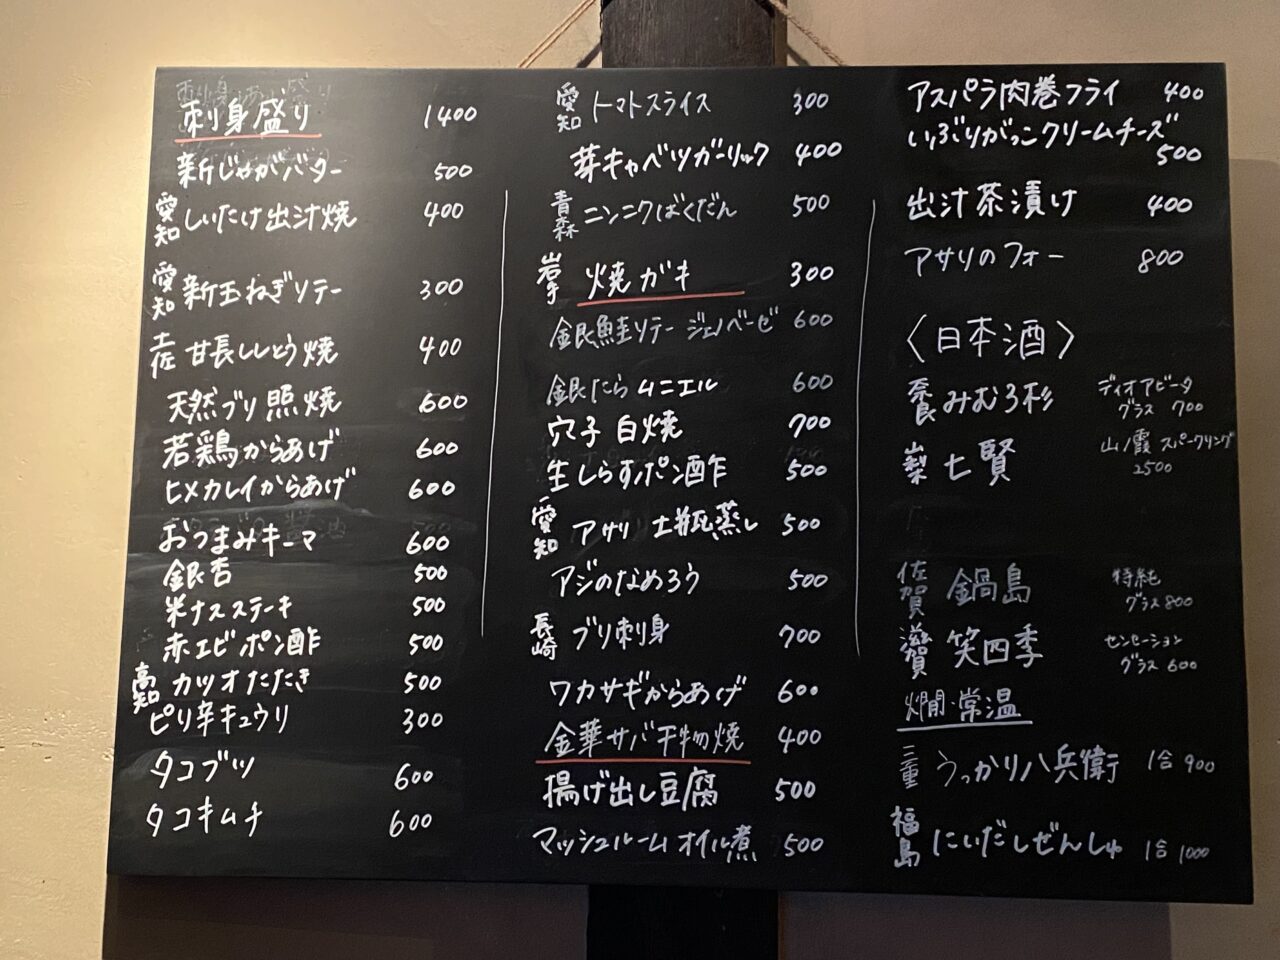 刺身盛り 1400
新じゃがバター 500
愛知 しいたけ出汁焼 400
愛知 新玉ねぎソテー 300
土佐 甘長ししとう焼 400
天然ブリ照焼 600
若鶏からあげ 600
ヒメカレイからあげ 600
おつまみキーマ 600
銀杏 500
米ナスステーキ 500
赤エビポン酢 500
高知 カツオたたき 500
ピリ辛キュウリ 300
タコブツ 600
タコキムチ 600
愛知 トマトスライス 300
芽キャベツガーリック 400
青森 ニンニクばくだん 500
岩手 焼ガキ 300
銀鮭ソテー ジェノベーゼ 600
銀だら ムニエル 600
穴子白焼 700
生しらすポン酢 500
愛知 アサリ 土瓶蒸し 500
アジのなめろう 500
長崎 ブリ刺身 700
ワカサギからあげ 600
金華サバ干物焼 400
揚げ出し豆腐 500
マッシュルームオイル煮 500
アスパラ肉巻フライ 400
いぶりがっこクリームチーズ 500
出汁茶漬け 400
アサリのフォー 800
〈日本酒〉
奈良 みむろ杉 ディオアビータ グラス 700
山梨 七賢 山ノ霞 スパークリング 2500
佐賀 鍋島 特純 グラス 800
滋賀 笑四季 センセーション グラス 600
燗・常温
三重 うっかり八兵衛 1合 900
福島 にいだしぜんしゅ 1合 1000